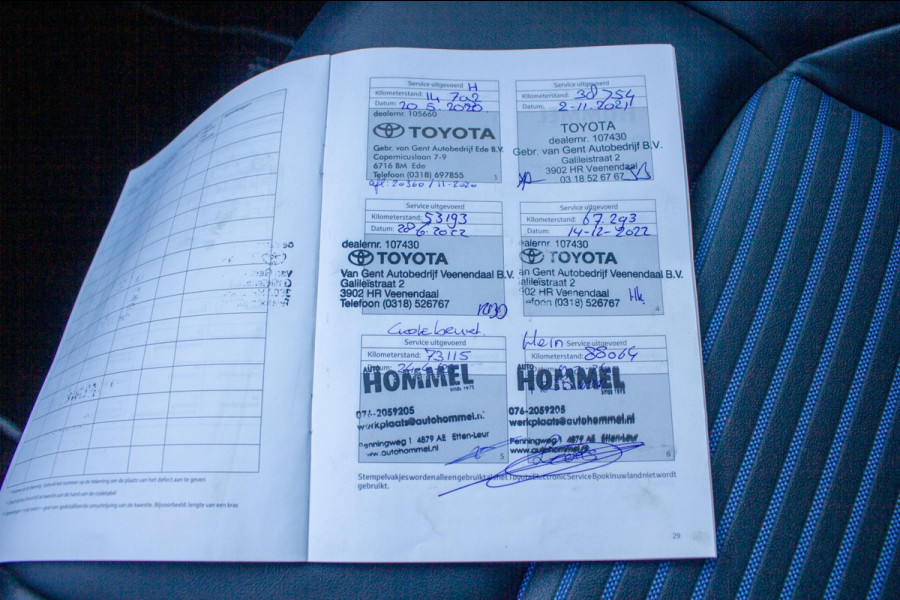 Service uitgevoerd H
Kilometerstand: 14 702
Datum: 20.5.2020
dealernr. 105660
TOYOTA
Gebr. van Gent Autobedrijf Ede B.V.
Copernicuslaan 7-9
6716 BM Ede
Telefoon (0318) 697855
20360 / 11-2020
Service uitgevoerd
Kilometerstand: 38754
Datum: 2-11.2021
TOYOTA
dealernr. 107430
Gebr. van Gent Autobedrijf Veenendaal B.V.
Galileistraat 2
3902 HR Veenendaal
03 18 52 67 67
Service uitgevoerd
Kilometerstand: 53193
Datum: 28 6.2022
dealernr. 107430
TOYOTA
Van Gent Autobedrijf Veenendaal B.V.
Galileïstraat 2
3902 HR Veenendaal
Telefoon (0318) 526767
Service uitgevoerd
Kilometerstand: 67.293
Datum: 14-12-2022
dealernr. 107430
TOYOTA
an Gent Autobedrijf Veenendaal B.V.
alileïstraat 2
902 HR Veenendaal
efoon (0318) 526767
4
Grote beurt
Service uitgevoerd
Kilometerstand: 73115
AUTO
HOMMEL
sinds 1975
076-2059205
werkplaats@autohommel.nl
Penningweg 1 4879 AE Etten-Leur
www.autohommel.nl
5
Klein Service uitgevoerd
Kilometerstand: 88064
AUTO
HOMMEL
076-2059205
werkplaats@autohommel.nl
Penningweg 1 4879 AE Etten-Leur
www.autohommel.nl
6
Stempelvakjes worden alleen gebruikt als het Toyota Electronic Service Boek in uw land niet wordt
gebruikt.
29